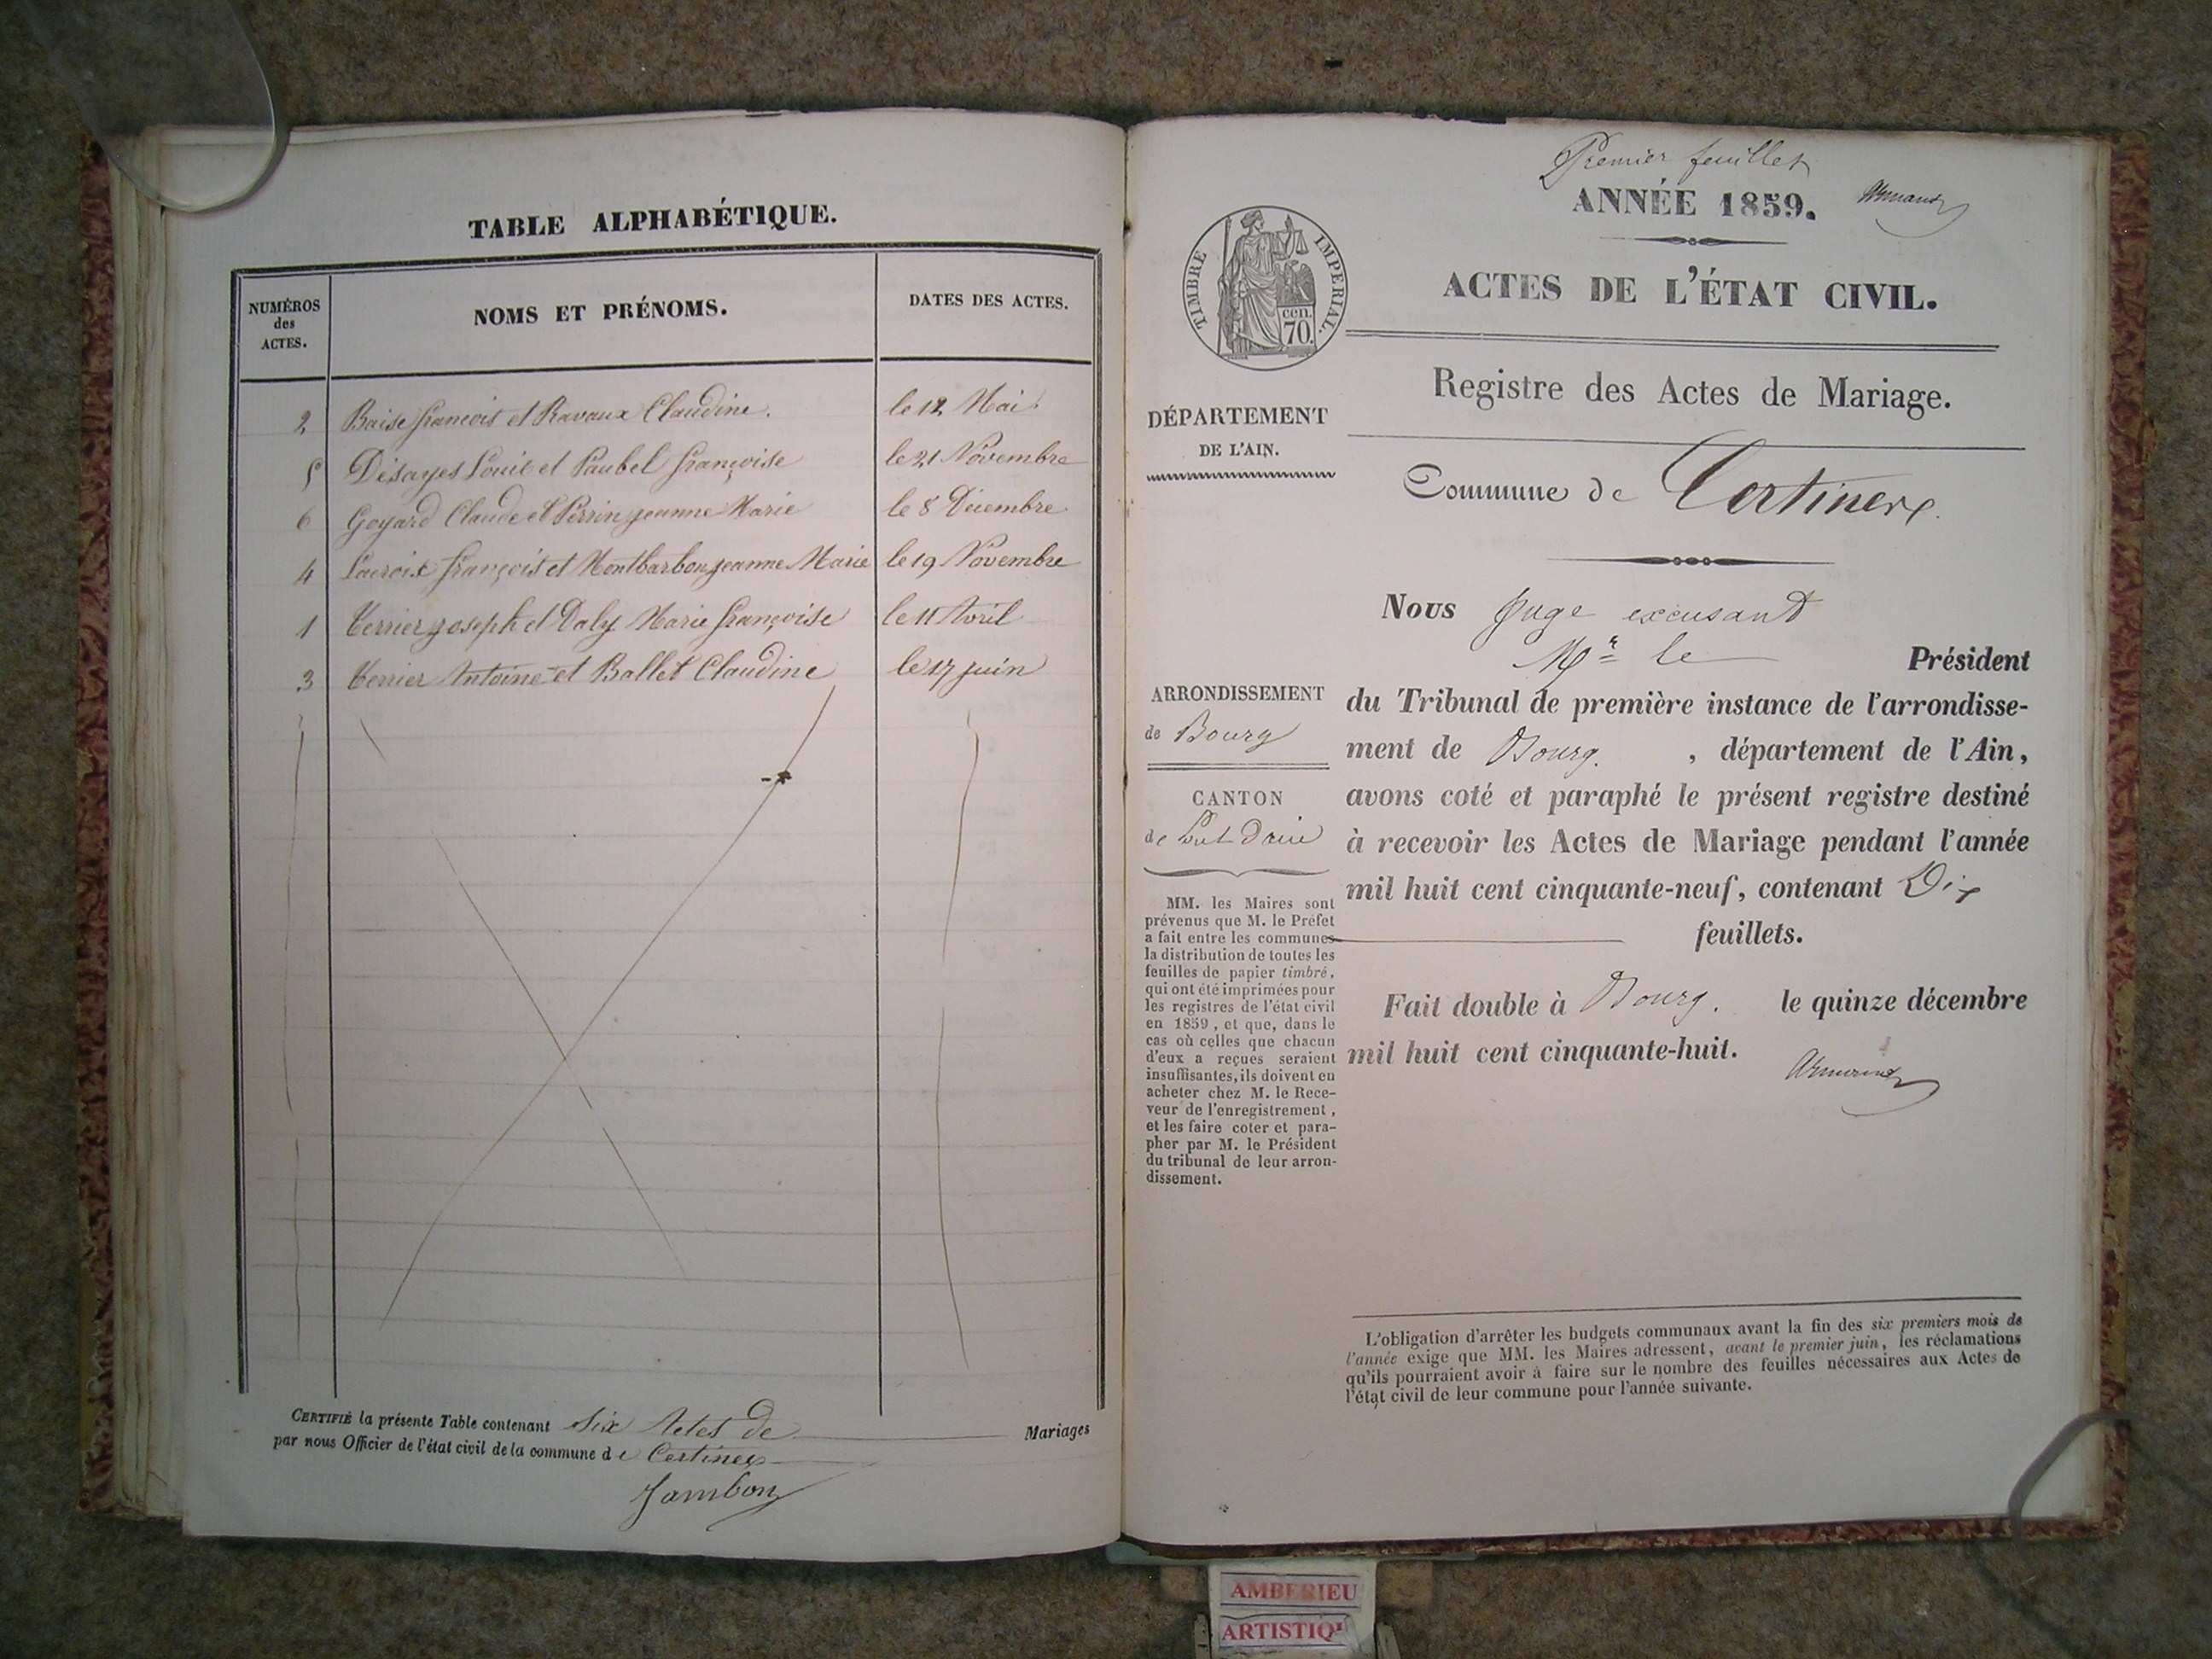 TABLE ALPHABÉTIQUE.
NUMÉROS des ACTES.
NOMS ET PRÉNOMS.
DATES DES ACTES.
2 Baise françois et Ravaux Claudine. le 12 Mai
5 Désayes Louis et Paubel françoise le 21 Novembre
6 Goyard Claude et Perrin jeanne Marie le 8 Décembre
4 Lacroix françois et Montbarbon jeanne Marie le 19 Novembre
1 Verrier joseph et Daly Marie françoise le 11 Avril
3 Verrier Antoine et Ballet Claudine le 17 juin
CERTIFIÉ la présente Table contenant Six Actes de Mariages
par nous Officier de l'état civil de la commune de Certines
Jambon
Premier feuillet
ANNÉE 1859.
Armand
TIMBRE IMPERIAL.
cen.
70.
ACTES DE L'ÉTAT CIVIL.
Registre des Actes de Mariage.
DÉPARTEMENT
DE L'AIN.
Commune de Certines
Nous Juge excusant
Mr le Président
du Tribunal de première instance de l'arrondisse-
ment de Bourg. , département de l'Ain,
avons coté et paraphé le présent registre destiné
à recevoir les Actes de Mariage pendant l'année
mil huit cent cinquante-neuf, contenant Dix
feuillets.
Fait double à Bourg. le quinze décembre
mil huit cent cinquante-huit.
Armand
ARRONDISSEMENT
de Bourg
CANTON
de Pont d'ain
MM. les Maires sont
prévenus que M. le Préfet
a fait entre les communes
la distribution de toutes les
feuilles de papier timbré,
qui ont été imprimées pour
les registres de l'état civil
en 1859, et que, dans le
cas où celles que chacun
d'eux a reçues seraient
insuffisantes, ils doivent en
acheter chez M. le Rece-
veur de l'enregistrement,
et les faire coter et para-
pher par M. le Président
du tribunal de leur arron-
dissement.
L'obligation d'arrêter les budgets communaux avant la fin des six premiers mois de
l'année exige que MM. les Maires adressent, avant le premier juin, les réclamations
qu'ils pourraient avoir à faire sur le nombre des feuilles nécessaires aux Actes de
l'état civil de leur commune pour l'année suivante.
AMBERIEU
ARTISTIQ